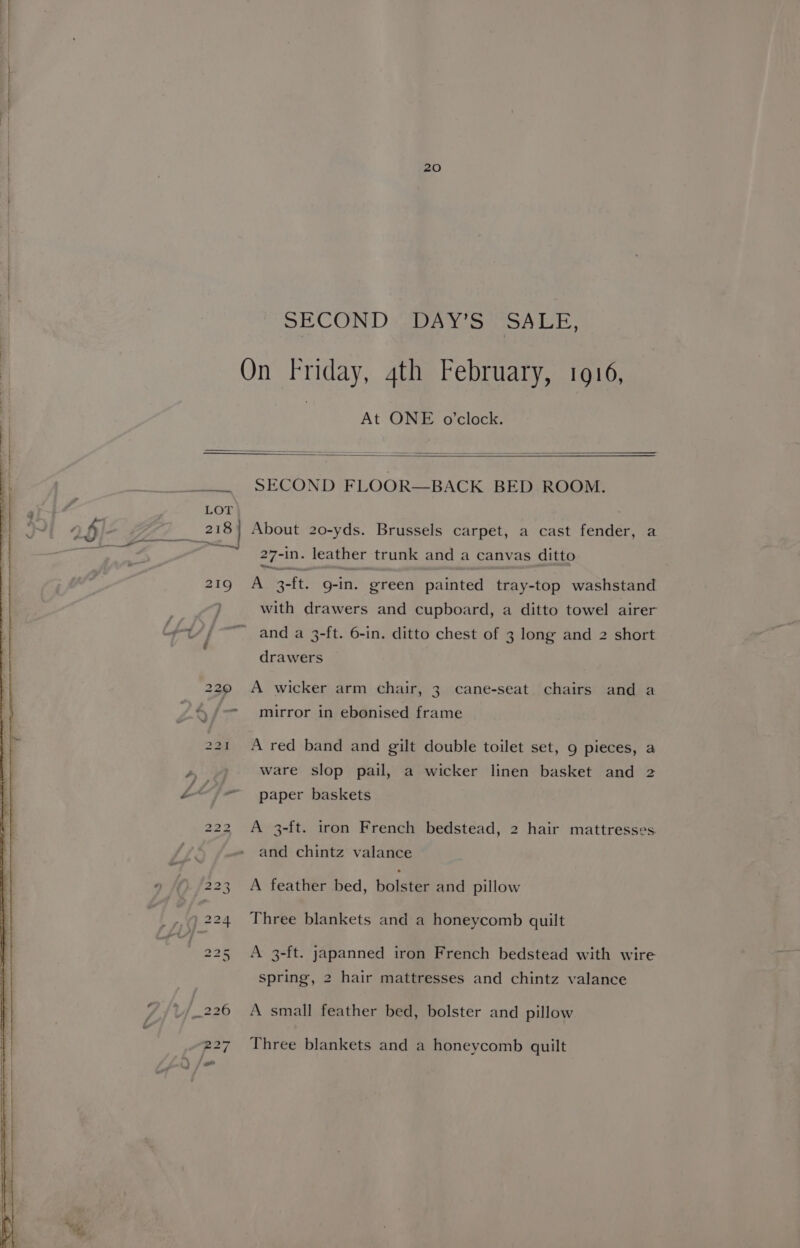 20
SECOND DAY'S SALE,
On Friday, 4th February, 1916,
At ONE o'clock.
SECOND FLOOR—BACK BED ROOM.
LOT
218 About 20-yds. Brussels carpet, a cast fender, a
27-in. leather trunk and a canvas ditto
219 A 3-ft. 9-in. green painted tray-top washstand
with drawers and cupboard, a ditto towel airer
and a 3-ft. 6-in. ditto chest of 3 long and 2 short
drawers
220 A wicker arm chair, 3 cane-seat chairs and a
mirror in ebonised frame
221 A red band and gilt double toilet set, 9 pieces, a
ware slop pail, a wicker linen basket and 2
paper baskets
222 A 3-ft. iron French bedstead, 2 hair mattresses
and chintz valance
223 A feather bed, bolster and pillow
224 Three blankets and a honeycomb quilt
225 A 3-ft. japanned iron French bedstead with wire
spring, 2 hair mattresses and chintz valance
226 A small feather bed, bolster and pillow
227 Three blankets and a honeycomb quilt